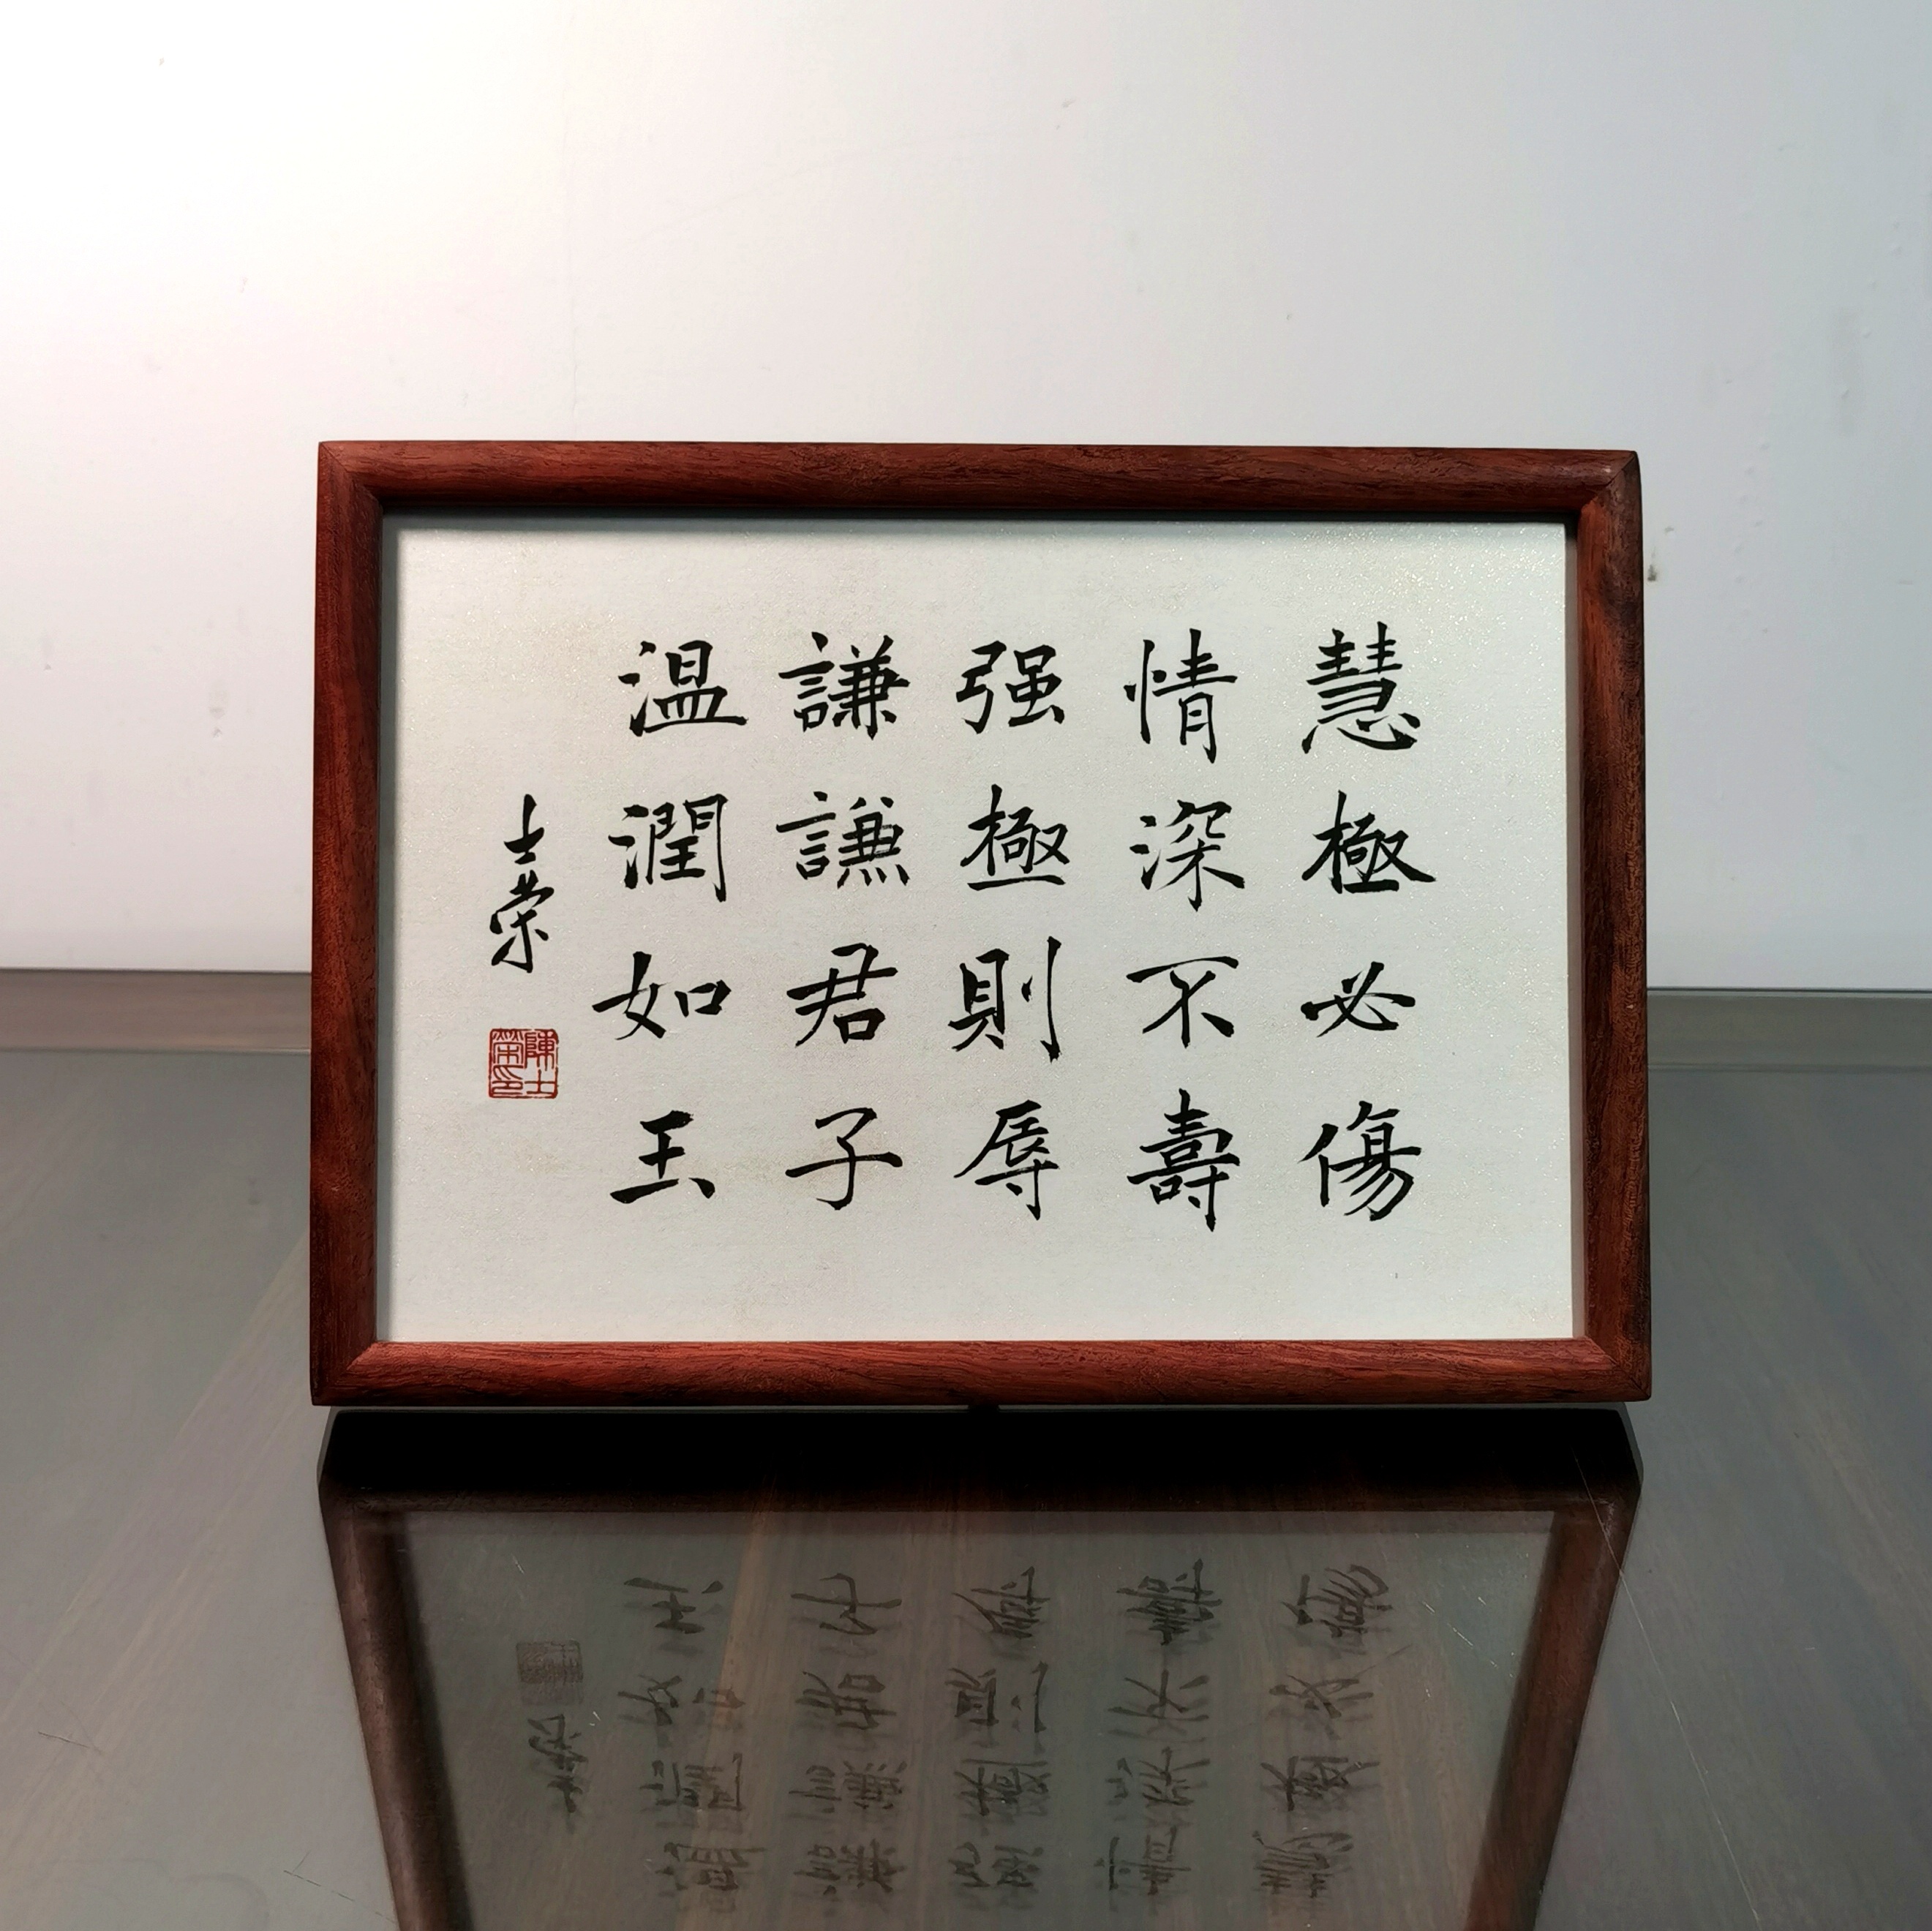 慧極必傷
情深不壽
强極則辱
謙謙君子
温潤如玉
士荣
陳士榮印